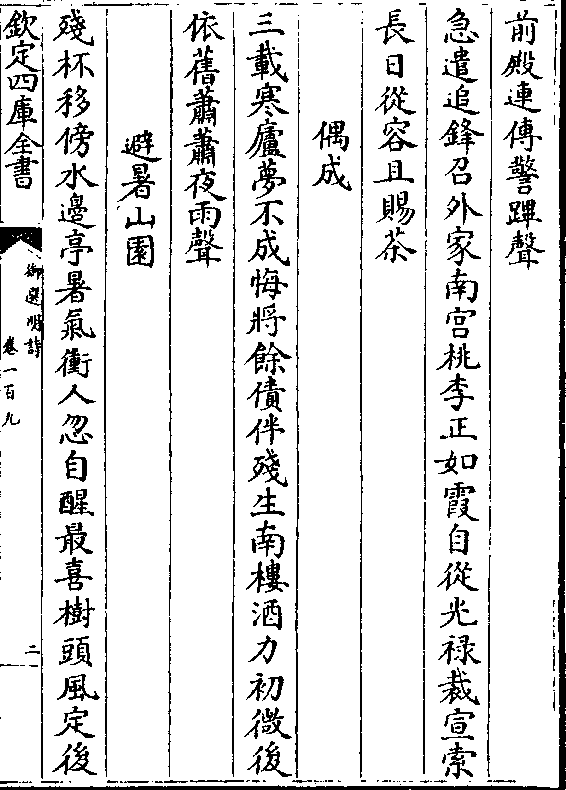 前殿連傳警蹕聲
急遣追鋒召外家南宫桃李正如霞自從光禄裁宣索
長日從容且賜茶
偶成
三載寒廬夢不成悔將餘債伴殘生南樓酒力初微後
依舊蕭蕭夜雨聲
避暑山園
殘杯移傍水邊亭暑氣衝人忽自醒最喜樹頭風定後
欽定四庫全書
御選明詩
卷一百九
二